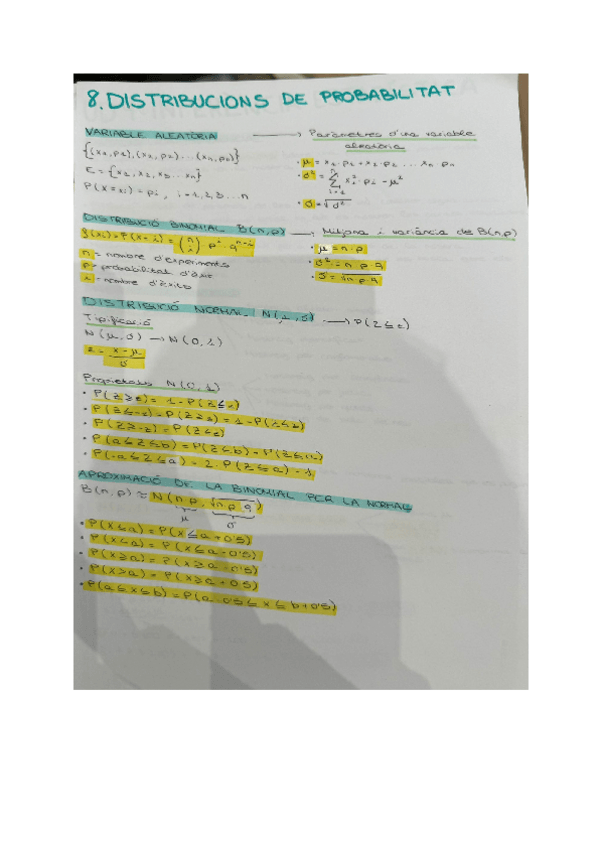 8. DISTRIBUCIONS DE PROBABILITAT
VARIABLE ALEATÒRIA → Paràmetres d'una variable aleatòria
{(x₁,p₁),(x₂,p₂)...(xₙ,pₙ)}
E = {x₁, x₂, x₃ ... xₙ}
P(X=xᵢ) = pᵢ , i = 1,2,3...n
• μ = x₁·p₁+x₂·p₂ ... xₙ·pₙ
• σ² = Σ xᵢ²·pᵢ - μ²
• σ = √σ²
DISTRIBUCIÓ BINOMIAL B(n,p) → Mitjana i variància de B(n,p)
P(X=i) = (n i) pⁱ·qⁿ⁻ⁱ
n = nombre d'experiments
p = probabilitat d'èxit
i = nombre d'èxits
• μ = n·p
• σ² = n·p·q
• σ = √n·p·q
DISTRIBUCIÓ NORMAL N(μ,σ) → P(Z≤z)
Tipificació
N(μ,σ) → N(0,1)
z = x-μ / σ
Propietats N(0,1)
• P(Z≥z) = 1-P(Z≤z)
• P(Z≤-z) = P(Z≥z) = 1-P(Z≤z)
• P(Z≥-z) = P(Z≤z)
• P(a≤Z≤b) = P(Z≤b)-P(Z≤a)
• P(-a≤Z≤a) = 2·P(Z≤a)-1
APROXIMACIÓ DE LA BINOMIAL PER LA NORMAL
B(n,p) ≈ N(n·p, √n·p·q)
μ σ
• P(X≤a) = P(X≤a+0'5)
• P(X<a) = P(X≤a-0'5)
• P(X≥a) = P(X≥a-0'5)
• P(X>a) = P(X≥a+0'5)
• P(a≤X≤b) = P(a-0'5≤X≤b+0'5)